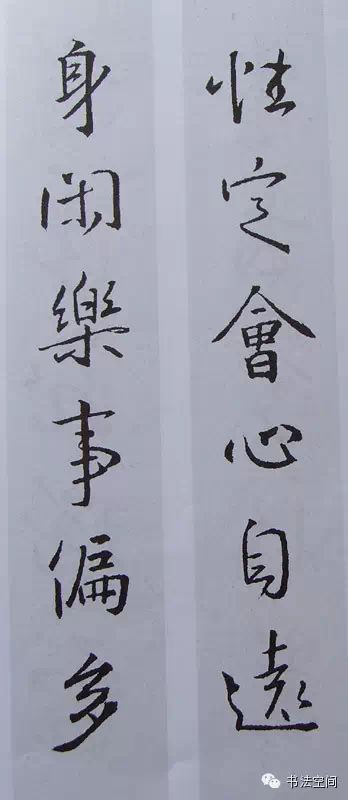 性定會心自遠
身閑樂事偏多
书法空间